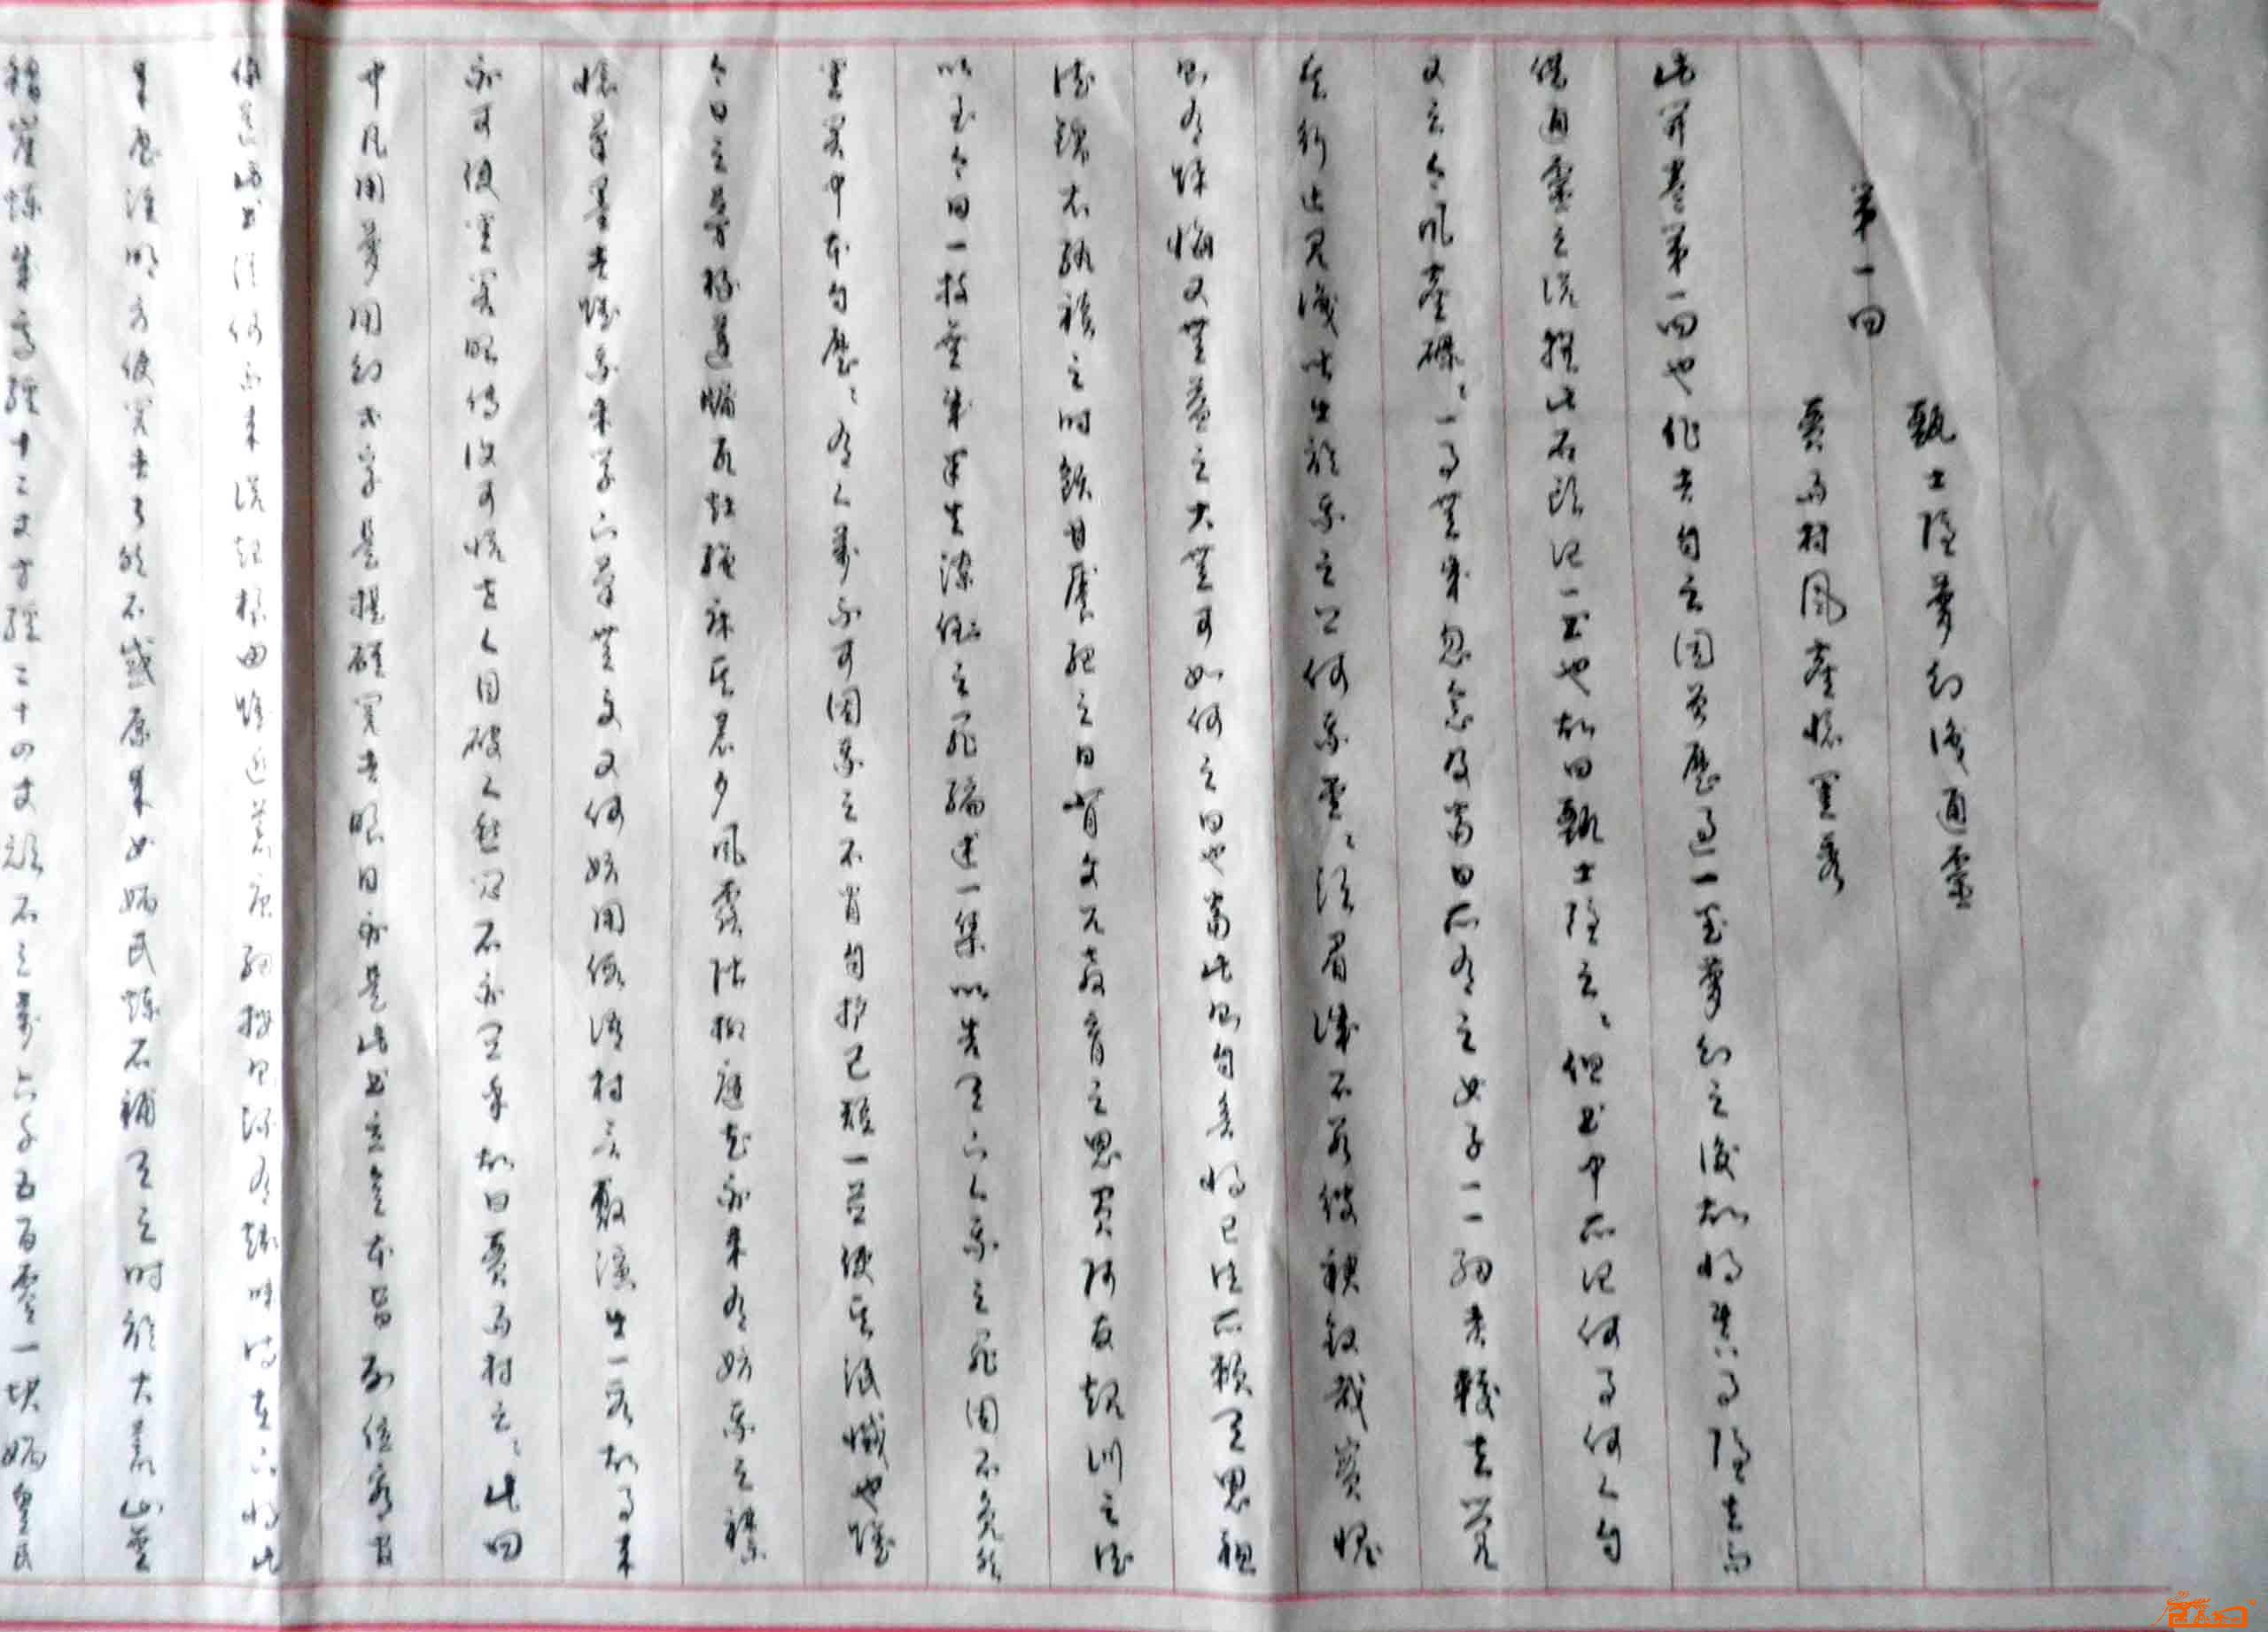 第一回
甄士隱夢幻識通靈
賈雨村風塵懷閨秀
此開卷第一回也作者自云因曾歷過一番夢幻之後故將真事隱去而
借通靈之說撰此石頭記一書也故曰甄士隱云云但書中所記何事何人自
又云今風塵碌碌一事無成忽念及當日所有之女子一一細考較去覺
其行止見識皆出於我之上何我堂堂鬚眉誠不若彼裙釵哉實愧
則有餘悔又無益之大無可如何之日也當此則自欲將已往所賴天恩祖
德錦衣紈絝之時飫甘饜肥之日背父兄教育之恩負師友規訓之德
以至今日一技無成半生潦倒之罪編述一集以告天下人我之罪固不免然
閨閣中本自歷歷有人萬不可因我之不肖自護己短一並使其泯滅也雖
今日之茅椽蓬牖瓦灶繩床其晨夕風露階柳庭花亦未有妨我之襟
懷筆墨者雖我未學下筆無文又何妨用假語村言敷演出一段故事來
亦可使閨閣昭傳復可悅世人目破人愁悶不亦宜乎故曰賈雨村云云此回
中凡用夢用幻等字是提醒閱者眼目亦是此書立意本旨列位看官
你道此書從何而來說起根由雖近荒唐細按則深有趣味待在下將此
來歷註明方使閱者了然不惑原來女媧氏煉石補天之時於大荒山無
稽崖煉成高經十二丈方經二十四丈頑石三萬六千五百零一塊媧皇氏